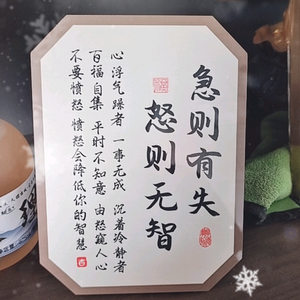 急则有失
怒则无智
心浮气躁者 一事无成 沉着冷静者
百福自集 平时不知意 由怒窥人心
不要愤怒 愤怒会降低你的智慧